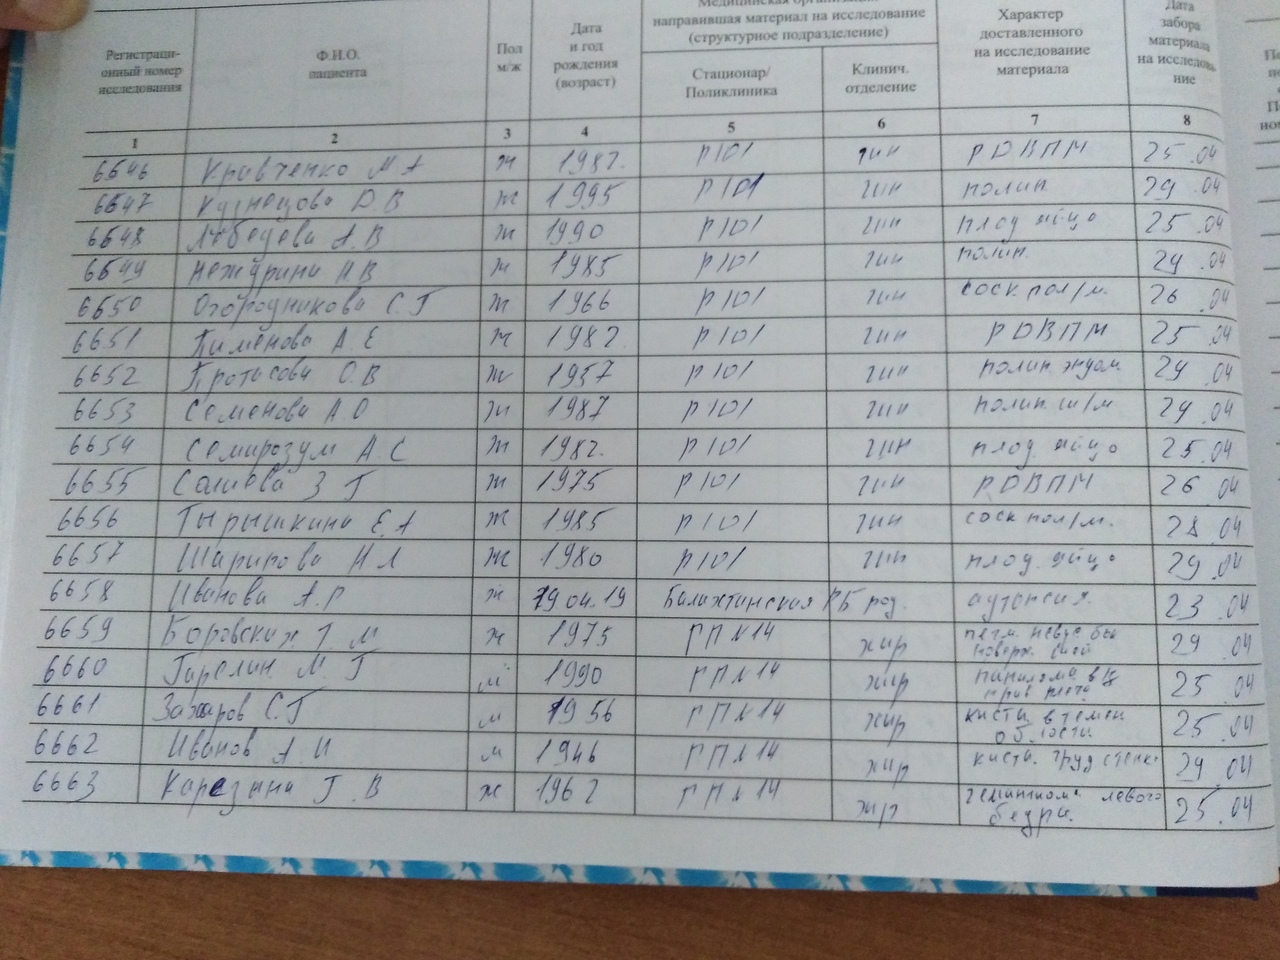 Медицинская организация,
направившая материал на исследование
(структурное подразделение)
Регистраци-
онный номер
исследования
Ф.И.О.
пациента
Пол
м/ж
Дата
и год
рождения
(возраст)
Стационар/
Поликлиника
Клинич.
отделение
Характер
доставленного
на исследование
материала
Дата
забора
материала
на исследова-
ние
1 2 3 4 5 6 7 8
6646 Кравченко М А ж 1982. Р101 гин РДВПМ 25.04
6647 Кузнецова О.В ж 1995 Р101 гин полип 29.04
6648 Лебедева А.В ж 1990 Р101 гин плод яйцо 25.04
6649 Нежурина Н.В ж 1985 Р101 гин полип. 29.04
6650 Огородникова С.Г ж 1966 Р101 гин соск. пол/м. 26.04
6651 Пименова А.Е ж 1982. Р101 гин РДВПМ 25.04
6652 Протасова О.В ж 1957 Р101 гин полип эндом. 29.04
6653 Семенова А.О ж 1987 Р101 гин полип ш/м. 29.04
6654 Семирозум А.С ж 1982. Р101 гин плод яйцо 25.04
6655 Салиева З Г ж 1975 Р101 гин РДВПМ 26.04
6656 Тырышкина Е.А ж 1985 Р101 гин соск пол/м. 28.04
6657 Шарипова Н Л ж 1980 Р101 гин плод. яйцо 29.04
6658 Иванова А.Р ж 19 04.19 Балахтинская РБ род. аутопсия. 23.04
6659 Боровских Т. М ж 1975 ГП №14 хир невус 29.04
6660 Гарелин М. Г м 1990 ГП №14 хир папилома 25.04
6661 Захаров С.Г м 1956 ГП №14 хир киста в темен
области 25.04
6662 Иванов А.И м 1946 ГП №14 хир киста груд стенки 29.04
6663 Карезина Г.В ж 1962 ГП №14 хир левого
бедра. 25.04